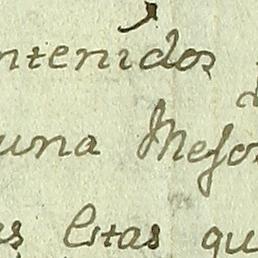 ntenidos
una Mejo
s Estas qu